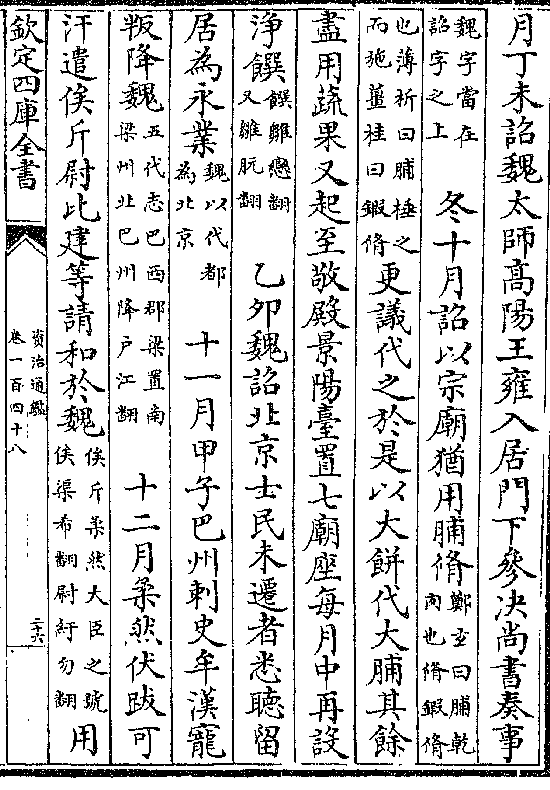 月丁未詔魏太師高陽王雍入居門下參決尚書奏事
魏字當在詔字之上　冬十月詔以宗廟猶用脯脩鄭玄曰脯乾肉也脩鍜脩
也薄祈曰脯棰之而施薑桂曰鍜脩更議代之於是以大餅代大脯其餘
盡用蔬果又起至敬殿景陽臺置七廟座每月中再設
淨饌饌雛戀翻又雛皖翻　乙卯魏詔北京士民未遷者悉聽留
居為永業魏以代都為北京　十一月甲子巴州刺史牟漢寵
叛降魏五代志巴西郡梁置南梁州北巴州降戶江翻　十二月柔然伏跋可
汗遣俟斤尉比建等請和於魏俟斤柔然大臣之號俟渠希翻尉紆勿翻　用
欽定四庫全書
資治通鑑
卷一百四十八
二十六